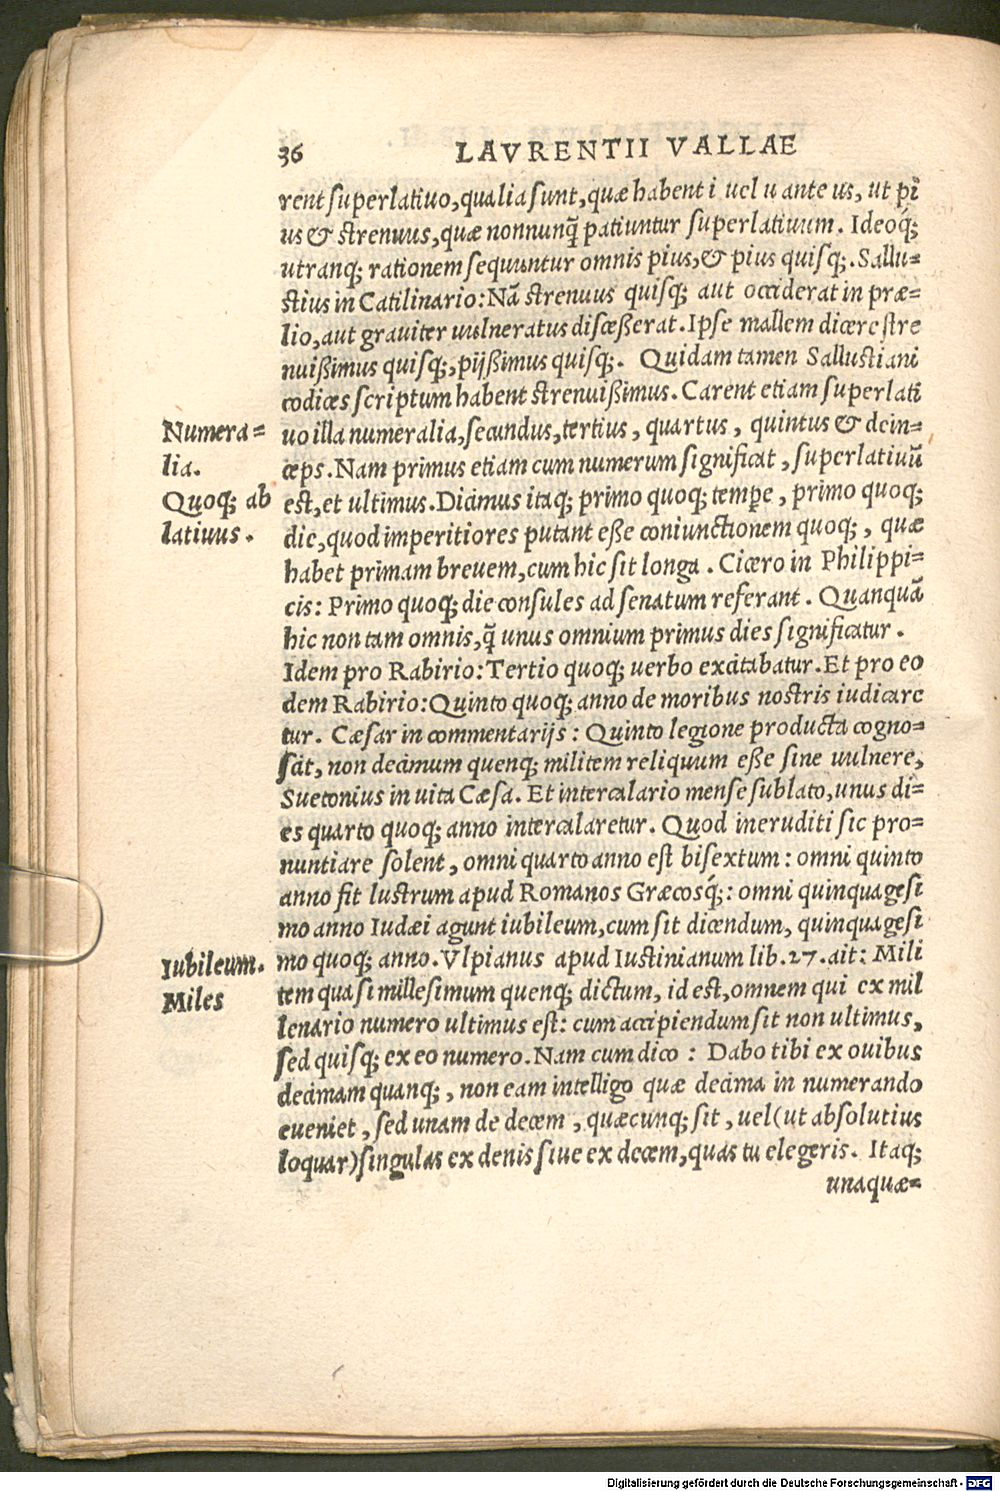 36 LAVRENTII VALLAE
rent superlatiuo, qualia sunt, quæ habent i uel u ante us, ut pĩ
us & strenuus, quæ nonnunq̃ patiuntur superlatiuum. Ideoq́;
utranq; rationem sequuntur omnis pius, & pius quisq;. Sallu=
stius in Catilinario: Nã strenuus quisq; aut occiderat in præ=
lio, aut grauiter uulneratus discesserat. Ipse mallem dicere stre
nuissimus quisq;, pijssimus quisq;. Quidam tamen Sallustiani
codices scriptum habent strenuissimus. Carent etiam superlati
Numera=
uo illa numeralia, secundus, tertius, quartus, quintus & dein=
lia.
ceps. Nam primus etiam cum numerum significat, superlatiuũ
Quoq; ab
est, et ultimus. Dicimus itaq; primo quoq; tempe, primo quoq;
latiuus.
die, quod imperitiores putant esse coniunctionem quoq;, quæ
habet primam breuem, cum hic sit longa. Cicero in Philippi=
cis: Primo quoq; die consules ad senatum referant. Quanquã
hic non tam omnis, q̃ unus omnium primus dies significatur.
Idem pro Rabirio: Tertio quoq; uerbo excitabatur. Et pro eo
dem Rabirio: Quinto quoq; anno de moribus nostris iudicare
tur. Cæsar in commentarijs: Quinto legione producta cogno=
scit, non decimum quenq; militem reliquum esse sine uulnere,
Suetonius in uita Cæsa. Et intercalario mense sublato, unus di=
es quarto quoq; anno intercalaretur. Quod ineruditi sic pro=
nuntiare solent, omni quarto anno est bisextum: omni quinto
anno fit lustrum apud Romanos Græcosq́;: omni quinquagesi
mo anno Iudæi agunt iubileum, cum sit dicendum, quinquagesi
Iubileum.
mo quoq; anno. Vlpianus apud Iustinianum lib. 27. ait: Mili
Miles
tem quasi millesimum quenq; dictum, id est, omnem qui ex mil
lenario numero ultimus est: cum accipiendum sit non ultimus,
sed quisq; ex eo numero. Nam cum dico: Dabo tibi ex ouibus
decimam quanq;, non eam intelligo quæ decima in numerando
eueniet, sed unam de decem, quæcunq; sit, uel (ut absolutius
loquar) singulas ex denis siue ex decem, quas tu elegeris. Itaq;
unaquæ=
Digitalisierung gefördert durch die Deutsche Forschungsgemeinschaft - DFG